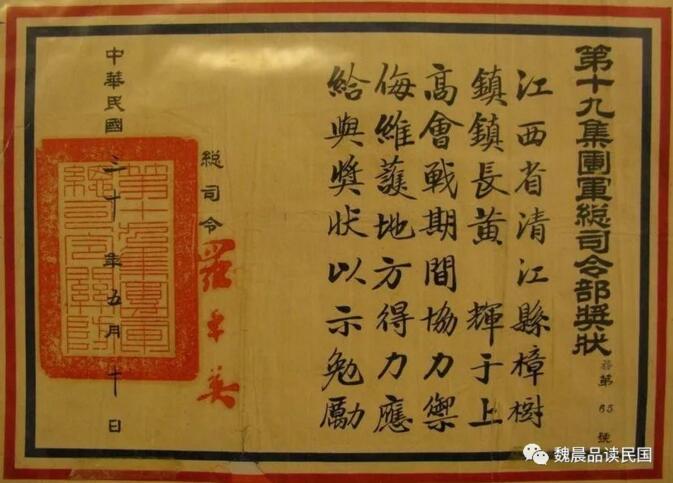 第十九集團軍総司令部獎狀
第 65 號
江西省清江縣樟樹
鎮鎮長黃 輝于上
高會戰期間協力禦
侮維護地方得力應
給與獎狀以示勉勵
総司令 羅卓英
中華民國三十年五月十日
魏晨品读民国